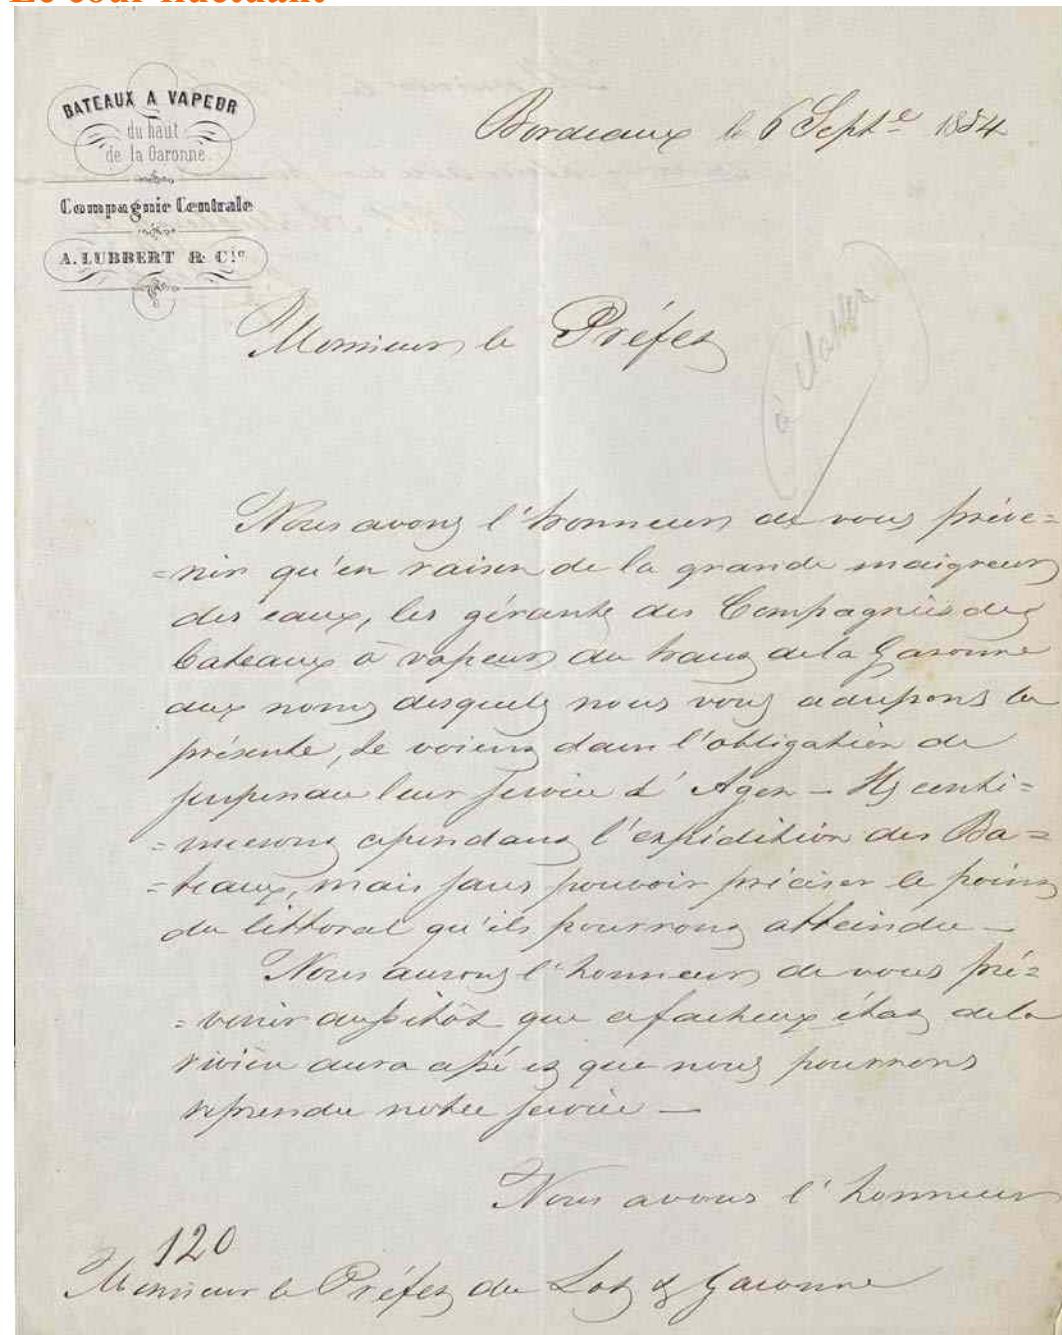 BATEAUX A VAPEUR
du haut
de la Garonne
Compagnie Centrale
A. LUBBERT & Cie
Bordeaux le 6 Septe 1854
Monsieur le Préfet
à classer
Nous avons l'honneur de vous préve=
=nir qu'en raison de la grande maigreur
des eaux, les gérants des Compagnies des
bateaux à vapeur du haut de la Garonne
aux noms desquels nous vous adressons la
présente, se voient dans l'obligation de
suspendre leur service d'Agen - Ils conti=
=nueront cependant l'expédition des Ba=
=teaux, mais sans pouvoir préciser le point
du littoral qu'ils pourront atteindre -
Nous aurons l'honneur de vous pré=
=venir aussitôt que ce facheux état de la
rivière aura cessé et que nous pourrons
reprendre notre service -
Nous avons l'honneur
120
Monsieur le Préfet du Lot & Garonne